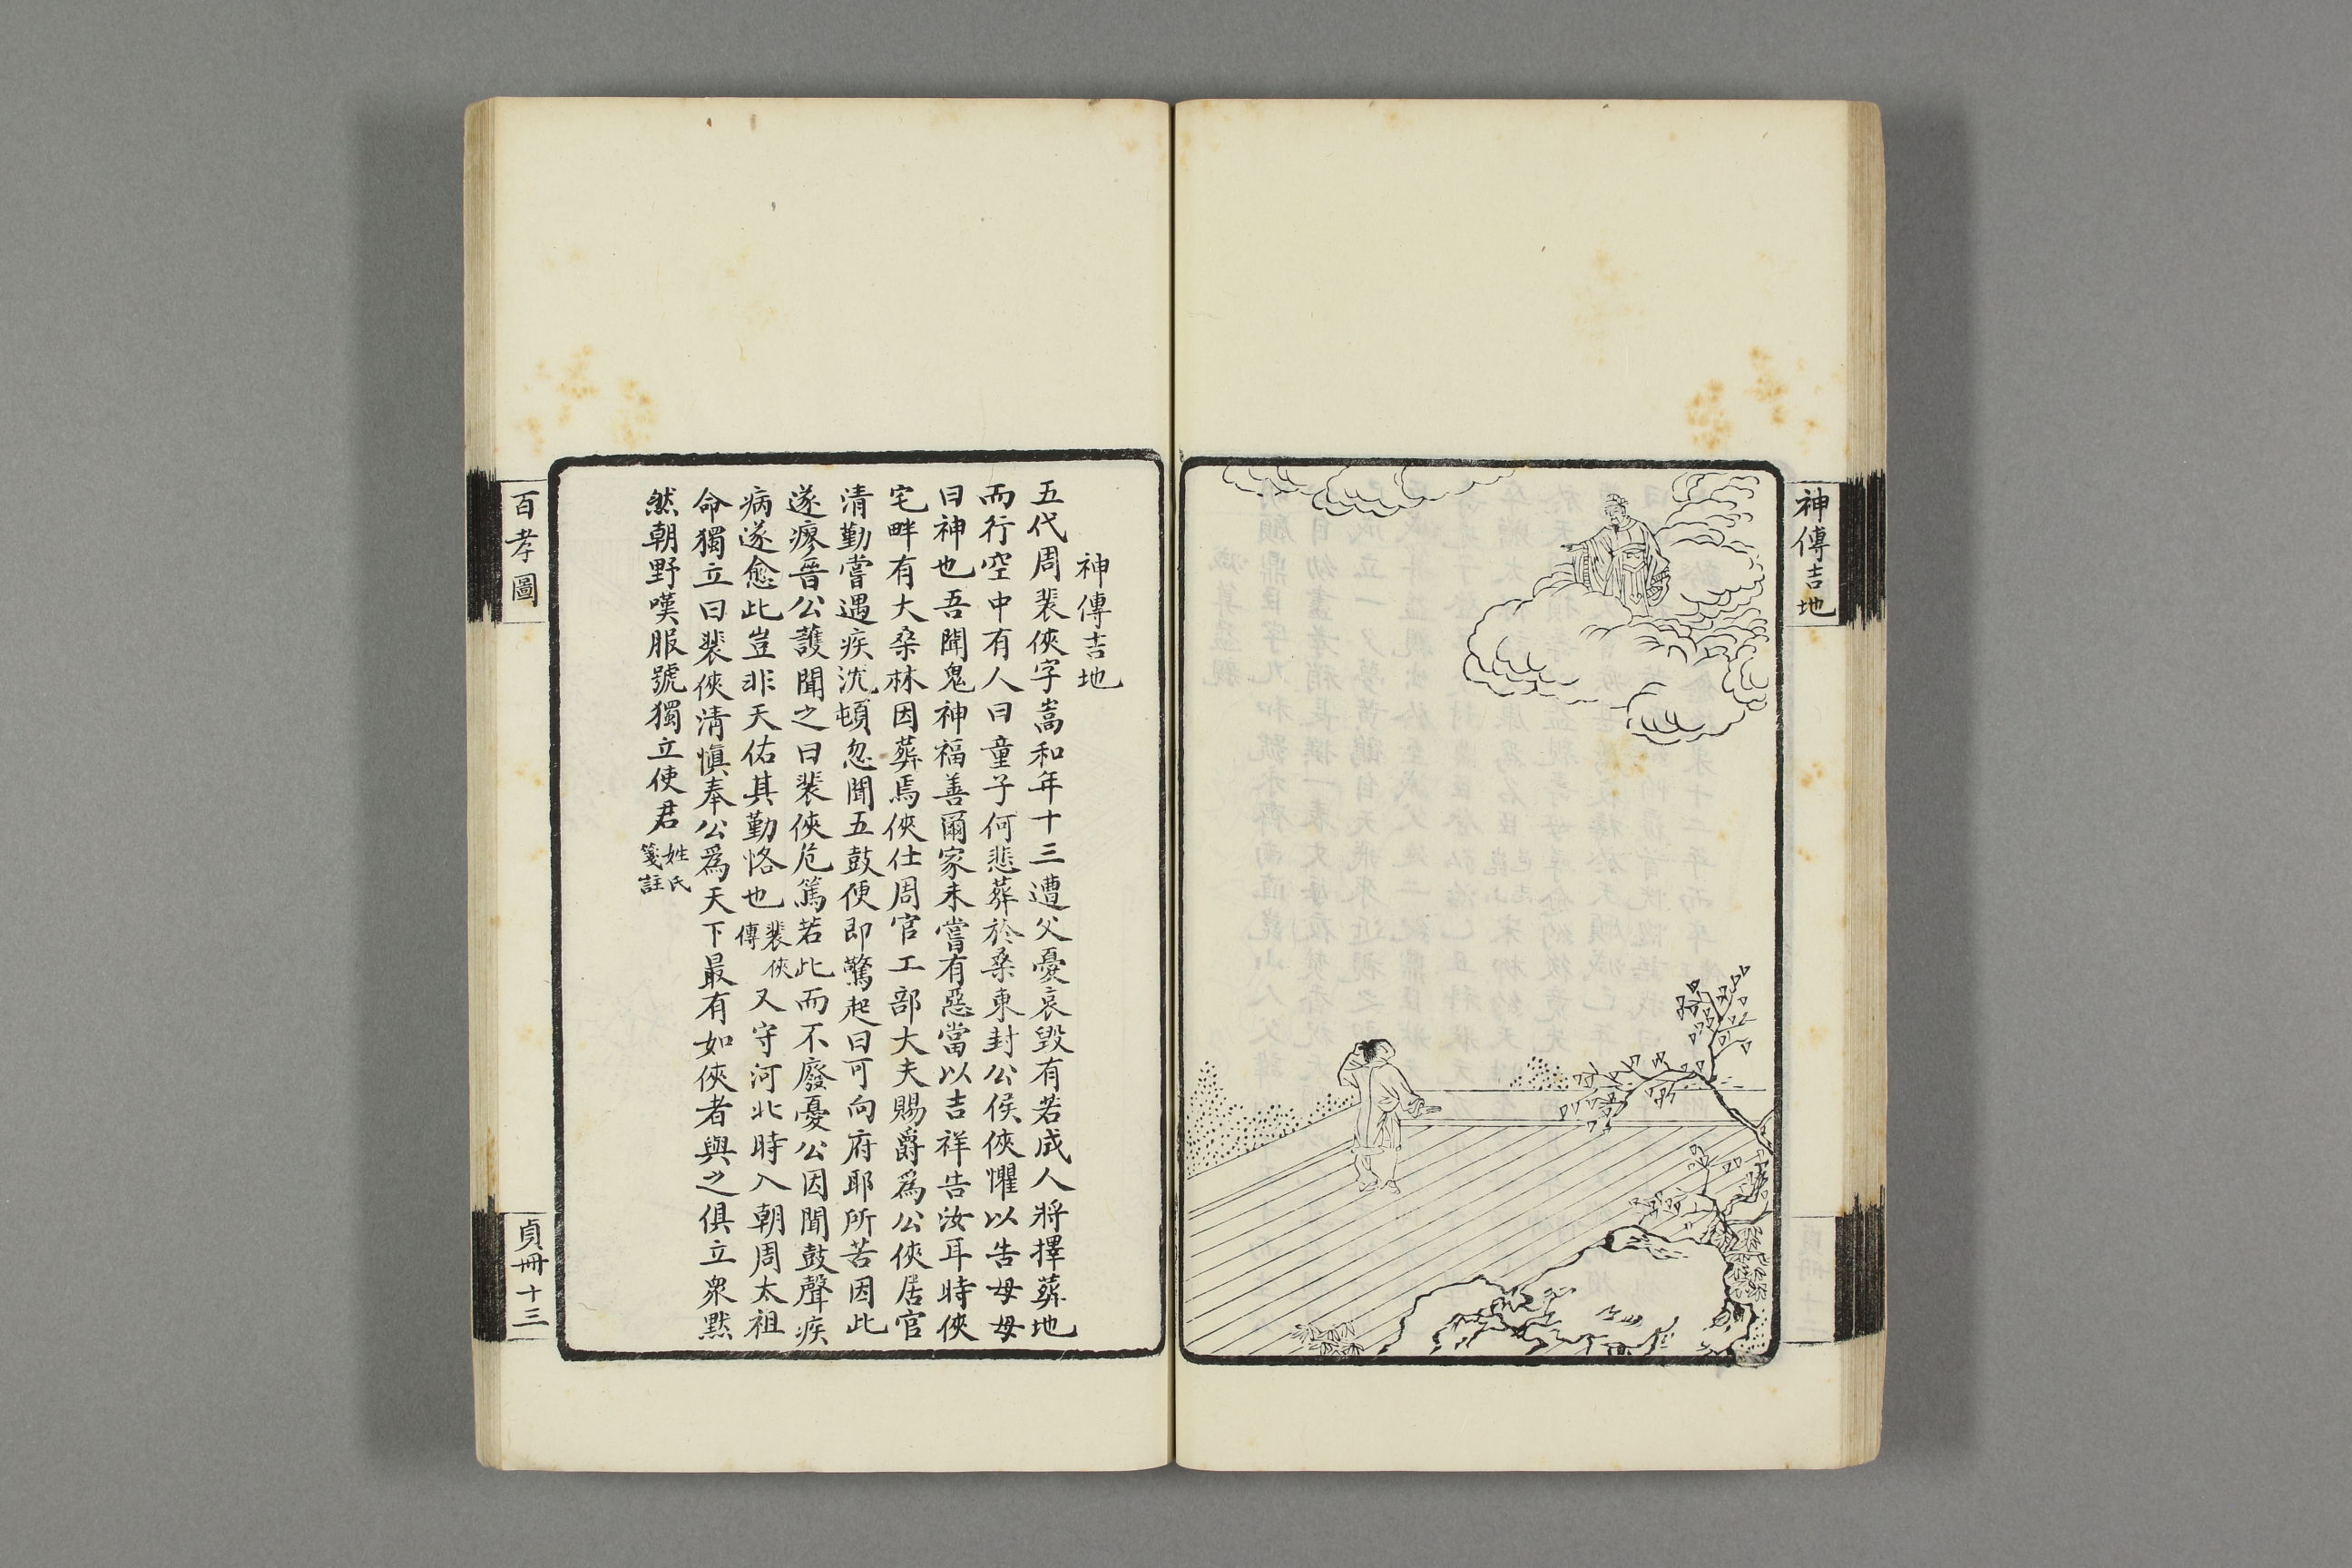 神傳吉地
神傳吉地
五代周裴俠字嵩和年十三遭父憂哀毀有若成人將擇葬地
而行空中有人曰童子何悲葬於桑東封公侯俠懼以告母母
曰神也吾聞鬼神福善爾家未嘗有惡當以吉祥告汝耳時俠
宅畔有大桑林因葬焉俠仕周官工部大夫賜爵爲公俠居官
清勤嘗遇疾沈頓忽聞五鼓便即驚起曰可向府耶所苦因此
遂瘳晉公護聞之曰裴俠危篤若此而不廢憂公因聞鼓聲疾
病遂愈此豈非天佑其勤恪也裴俠傳又守河北時入朝周太祖
命獨立曰裴俠清慎奉公爲天下最有如俠者與之俱立衆默
然朝野嘆服號獨立使君姓氏箋註
百孝圖
貞冊十三